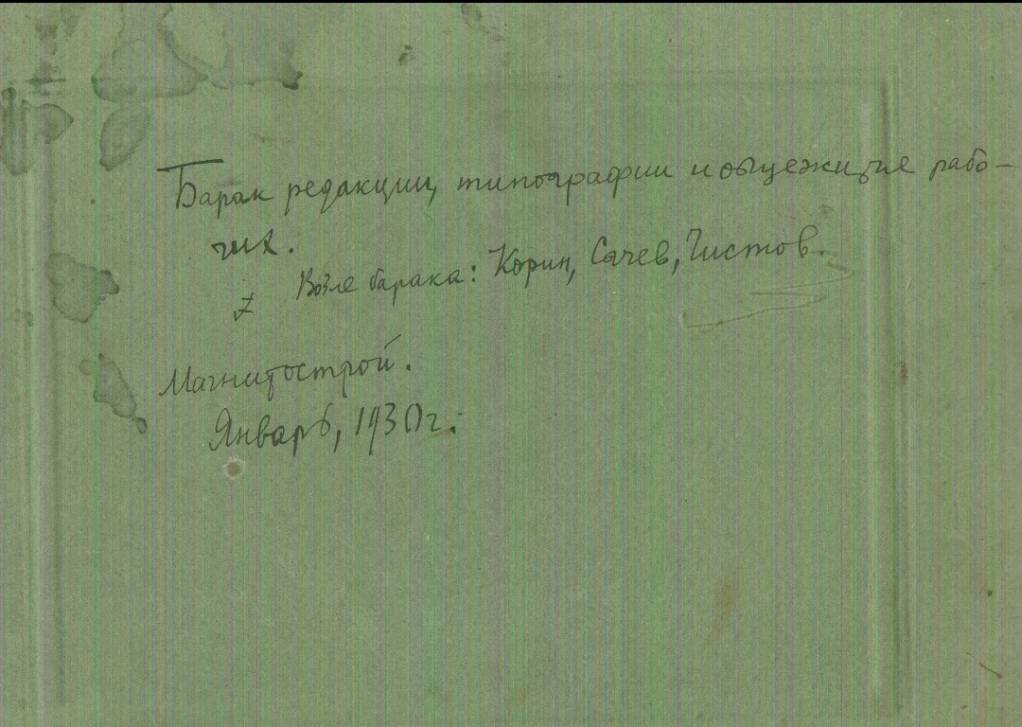 Барак редакции, типографии и общежитие рабо-
чих.
Возле барака: Корин, Сачев, Чистов.
Магнитострой.
Январь, 1930 г.